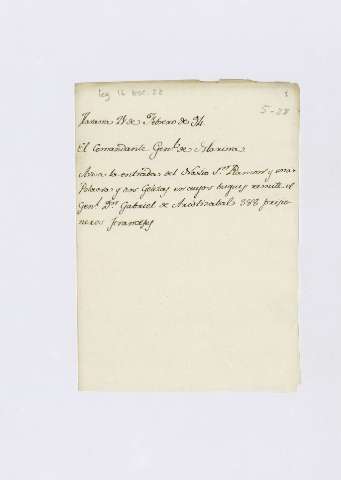 Leg 16 Doc. 22
1
5-28
Havana 21 de Febrero de 94.
El Comandante Genl. de Marina
Avisa la entrada del Navio Sn. Ramon y una
y dos Goletas en cuyos buques remite el
Genl. Dn. Gabriel de Aristizabal 388 prisio
neros Franceses